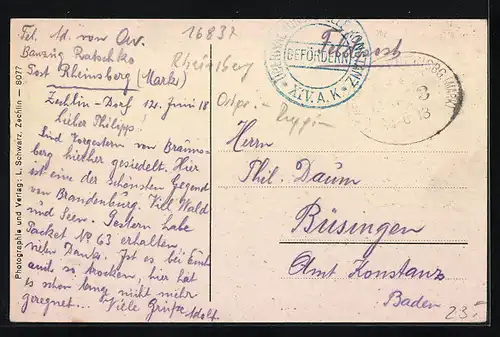 Tel. Ad. von Ow.
Bauzug Ratschko
Post Rheinsberg (Mark)
Zechlin-Dorf 12. Juni 18
Lieber Philipp!
Sind vorgestern von Brauns-
berg hierher gesiedelt. Hier
ist eine der schönsten Gegend
von Brandenburg. Viel Wald
und Seen. Gestern habe
Packet No 63 erhalten.
vielen Dank. Ist es bei Euch
auch so trocken, hier hat
es schon lang nicht mehr
geregnet... Viele Grüße Adolf.
Photographie und Verlag: L. Schwarz, Zechlin - 8077
16837
Rheinsberg
Feldpost
KONSTANZ
BEFÖRDERN
XIV. A.K.
Herrn
Phil. Daum
Büsingen
Amt Konstanz
Baden
23.-